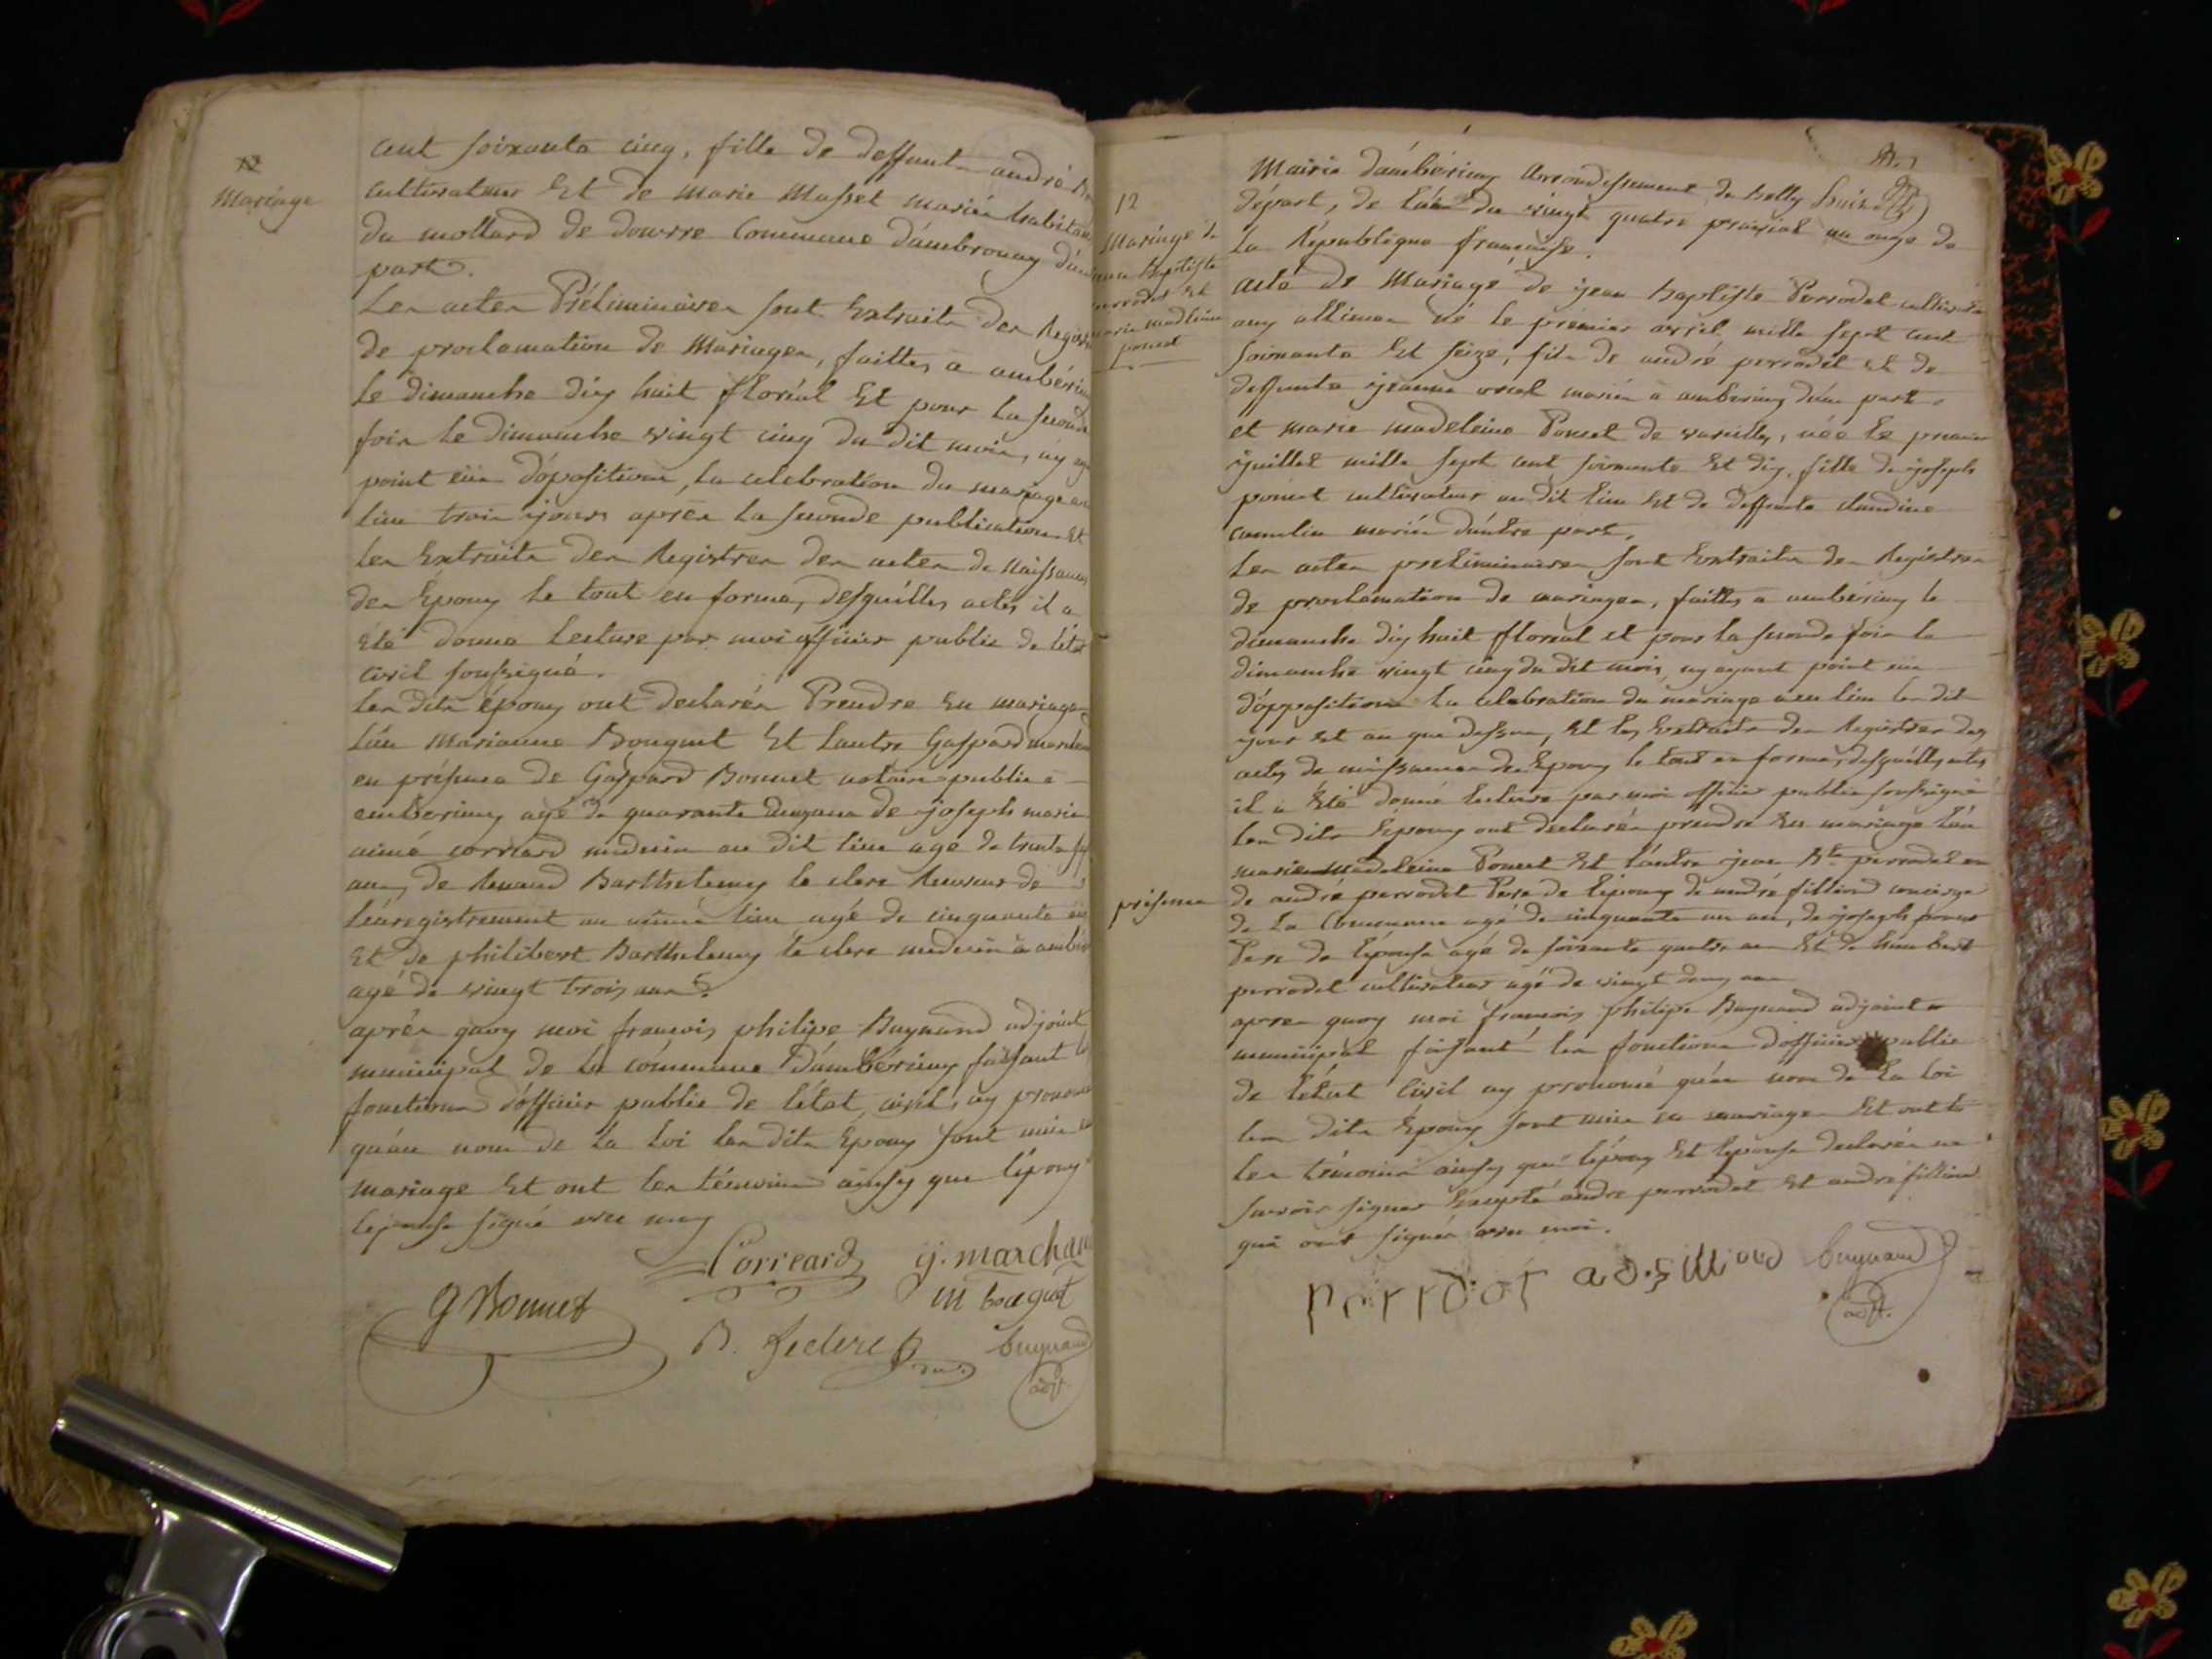 12
Mariage
cent soixante cinq, fille de deffunt andré
cultivateur Et de marie Masset mariés habitans
du mollard de douvre Commune d'ambronay d'autre
part.
Les actes Préliminaires sont Extraits des Registres
de proclamation de Mariages, faittes a ambérieu
le dimanche dix huit floréal Et pour la seconde
fois le dimanche vingt cinq du dit mois, ny aya
point eüe d'opposition, la celebration du mariage a eu
lieu trois jours aprés la seconde publication Et
les Extraits des Registres des actes de Naissances
des Epoux le tout en forme, desquelles actes il a
Eté donné lecture par moi officier public de l'état
civil soussigné.
les dits époux ont declarés Prendre En mariage
l'un Marianne Bouguet Et lautre Gaspard marchand
en présence de Gaspard Bonnet notaire public a
amberieux agé de quarante deux ans de joseph marie
aimé corréard medecin au dit lieu agé de trente
ans, de Renaud Barthelemy le clerc Receveur de
l'enregistrement au même lieu agé de cinquante
Et de philibert Barthelemy le clerc medecin à ambér
agé de vingt trois ans.
aprés quoy moi françois philipe Buynand adjoint
municipal de la commune D'ambérieux faisant les
fonctions d'officier public de l'état civil, ay prononcé
qu'au nom de la loi les dits Epoux sont unis en
mariage Et ont les témoins ainsy que l'époux
lepouse signé avec moy
Corréard g. marchand
G Bonnet m bouguet
B. leclerc buynand
adjt.
12
Mariage de
jean Baptiste
perrodet et
marie madleine
poncet
Mairie d'ambérieux Arrondissement de Belley
départ, de l'ain du vingt quatre prairial an onze de
la République française.
acte de Mariage de jean Baptiste Perrodet cultivate
aux allimes né le premier avril mille sept cent
soixante Et seize, fils de andré perrodet et de
deffunte jeanne mariés a amberieux d'une part.
et marie madeleine Poncet de vareilles, née le premier
juillet mille sept cent soixante Et dix, fille de joseph
poncet cultivateur au dit lieu Et de deffunte claudine
mariés d'autre part.
Les actes preliminaires sont Extraits des Registres
de proclamation de mariages, faittes a ambérieux le
dimanche dix huit floreal et pour la seconde fois le
dimanche vingt cinq du dit mois, ny ayant point eüe
d'opposition la celebration du mariage a eu lieu les dits
jour et an que dessus, Et les Extraits des Registres des
actes de naissances des Epoux le tout en forme, desquelles actes
il a Eté donné lecture par moi officier public soussigné
les dits Epoux ont declarés prendre En mariage l'un
marie Madeleine Poncet Et l'autre jean Bte perrodet en
présence de andré perrodet Pere de l'époux de andré filliod concierge
de la Commune agé de cinquante un an, de joseph poncet
Pere de l'epouse agé de soixante quatre ans Et de humbert
perrodet cultivateur agé de vingt deux ans
apres quoy moi françois philipe Buynand adjoint
municipal faisant les fonctions d'officier public
de l'état Civil ay prononcé qu'au nom de la loi
les dits Epoux sont unis en mariage Et ont
les témoins ainsy que l'époux Et l'epouse declarés ne
savoir signer Excepté andré perrodet Et andré filliod
qui ont signés avec moi.
perrodet ad. filliod buynand
adjt.